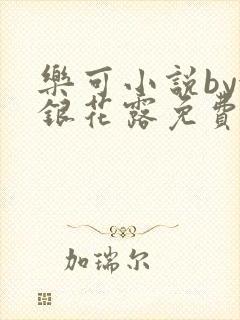 樂可小説by
銀花露免費
加瑞尔